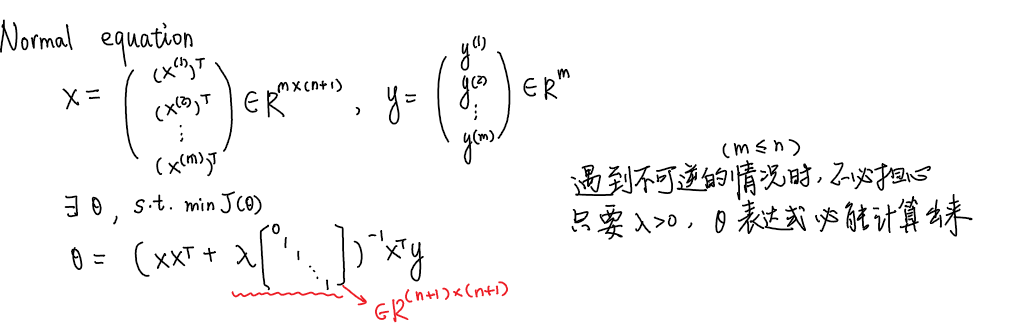 Normal equation
X = ( (x⁽¹⁾)ᵀ (x⁽²⁾)ᵀ ⋮ (x⁽ᵐ⁾)ᵀ ) ∈ ℝ^{m×(n+1)}, y = ( y⁽¹⁾ y⁽²⁾ ⋮ y⁽ᵐ⁾ ) ∈ ℝ^m
∃ θ, s.t. min J(θ)
θ = ( XXᵀ + λ [ 0 1 1 ⋱ 1 ] )⁻¹ Xᵀy
∈ ℝ^{(n+1)×(n+1)}
(m ≤ n)
遇到不可逆的情况时, 不必担心
只要 λ>0, θ 表达式必能计算出来